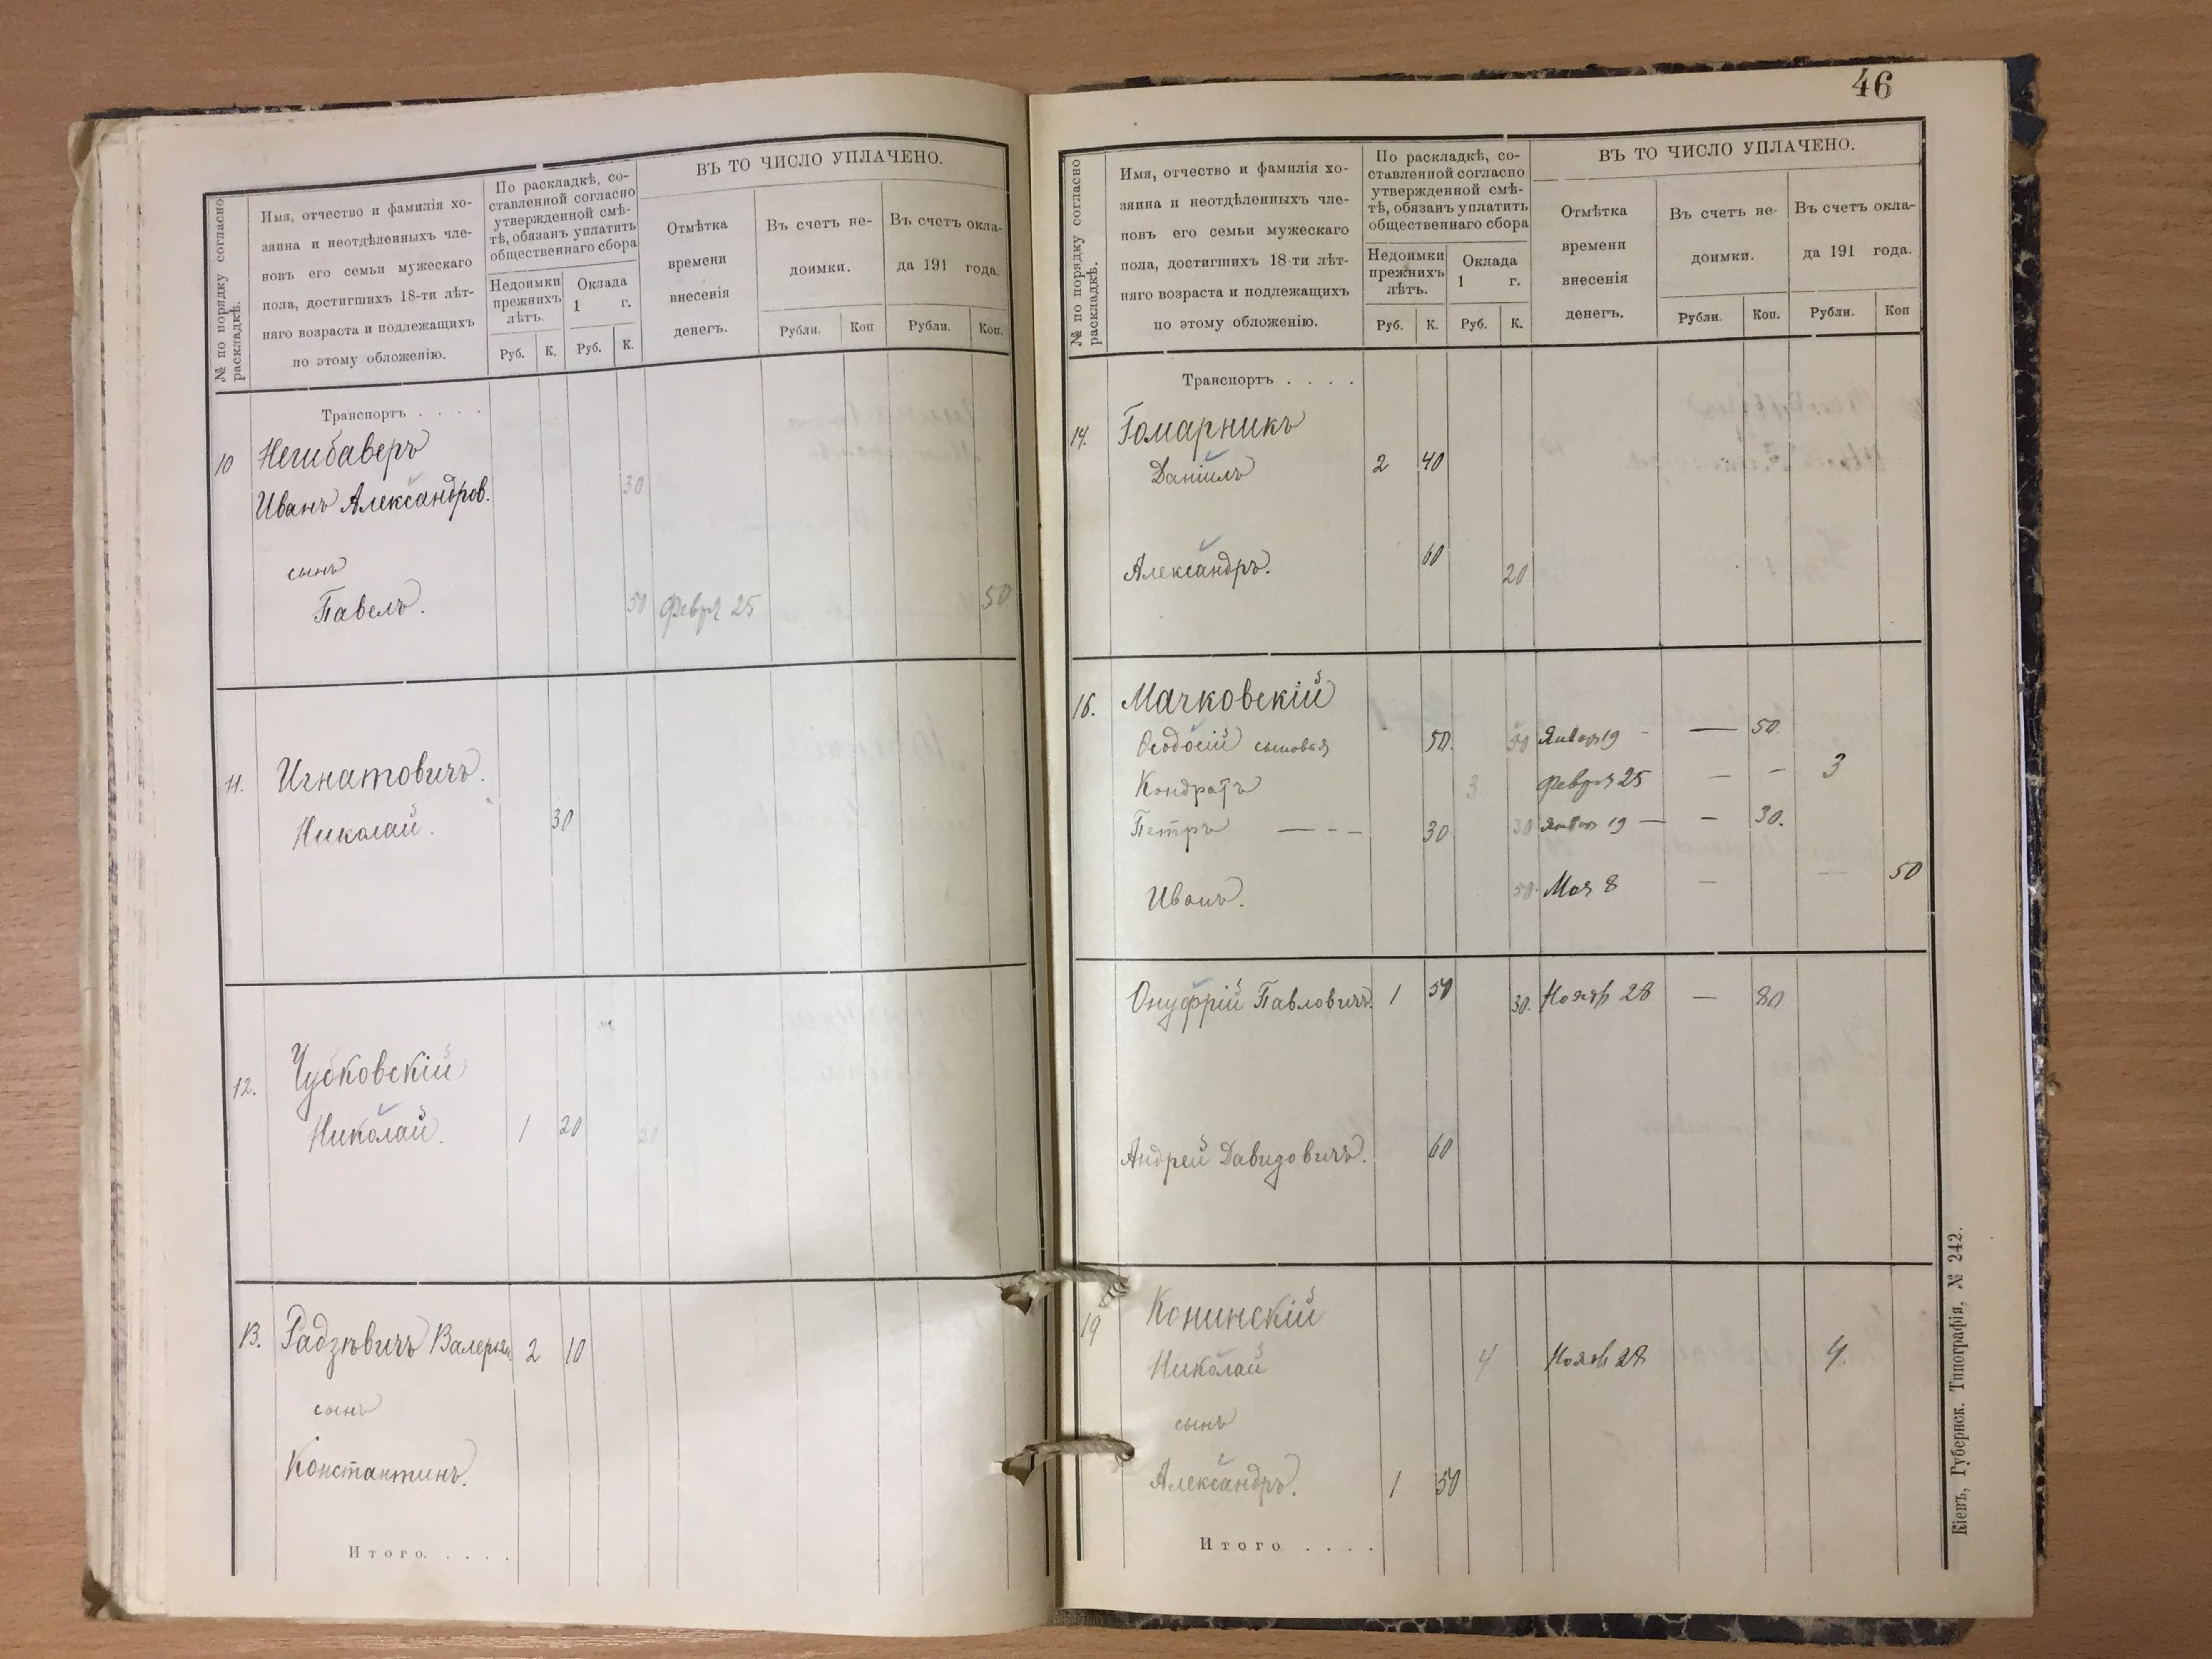 № по порядку согласно раскладкѣ.
Имя, отчество и фамилія хо-
зяина и неотдѣленныхъ чле-
новъ его семьи мужескаго
пола, достигшихъ 18-ти лѣт-
няго возраста и подлежащихъ
по этому обложенію.
По раскладкѣ, со-
ставленной согласно
утвержденной смѣ-
тѣ, обязанъ уплатить
общественнаго сбора
Недоимки
прежнихъ
лѣтъ.
Оклада
1 г.
Руб. К. Руб. К.
ВЪ ТО ЧИСЛО УПЛАЧЕНО.
Отмѣтка
времени
внесенія
денегъ.
Въ счетъ не-
доимки.
Въ счетъ окла-
да 191 года.
Рубли. Коп Рубли. Коп.
Транспортъ . . . .
10 Негибаверъ
Иванъ Александров. 30
сынъ
Павелъ. 50 Февря 25 50
11. Игнатовичъ.
Николай. 30
12. Чусковскій
Николай. 1 20 20
13. Радзѣвичъ Валерьян 2 10
сынъ
Константинъ.
Итого. . . . .
46
№ по порядку согласно раскладкѣ.
Имя, отчество и фамилія хо-
зяина и неотдѣленныхъ чле-
новъ его семьи мужескаго
пола, достигшихъ 18-ти лѣт-
няго возраста и подлежащихъ
по этому обложенію.
По раскладкѣ, со-
ставленной согласно
утвержденной смѣ-
тѣ, обязанъ уплатить
общественнаго сбора
Недоимки
прежнихъ
лѣтъ.
Оклада
1 г.
Руб. К. Руб. К.
ВЪ ТО ЧИСЛО УПЛАЧЕНО.
Отмѣтка
времени
внесенія
денегъ.
Въ счетъ не-
доимки.
Въ счетъ окла-
да 191 года.
Рубли. Коп. Рубли. Коп
Транспортъ . . . .
14. Гомарникъ
Даніилъ 2 40
Александръ. 60 20
16. Мачковскій
Ѳеодосій сыновья 50. 50 Январ 19 - — 50.
Кондратъ 3 Февря 25 — - 3
Петръ — - - 30 30 Январ 19 — - 30.
Иванъ. 50. Мая 8 — — 50
Онуфрій Павловичъ. 1 50 30. Нояб 28 — 80
Андрей Давидовичъ. 60
19 Конинскій
Николай 4 Нояб 28 4.
сынъ
Александръ. 1 50
Итого . . . .
Кіевъ, Губернск. Типографія, № 242.